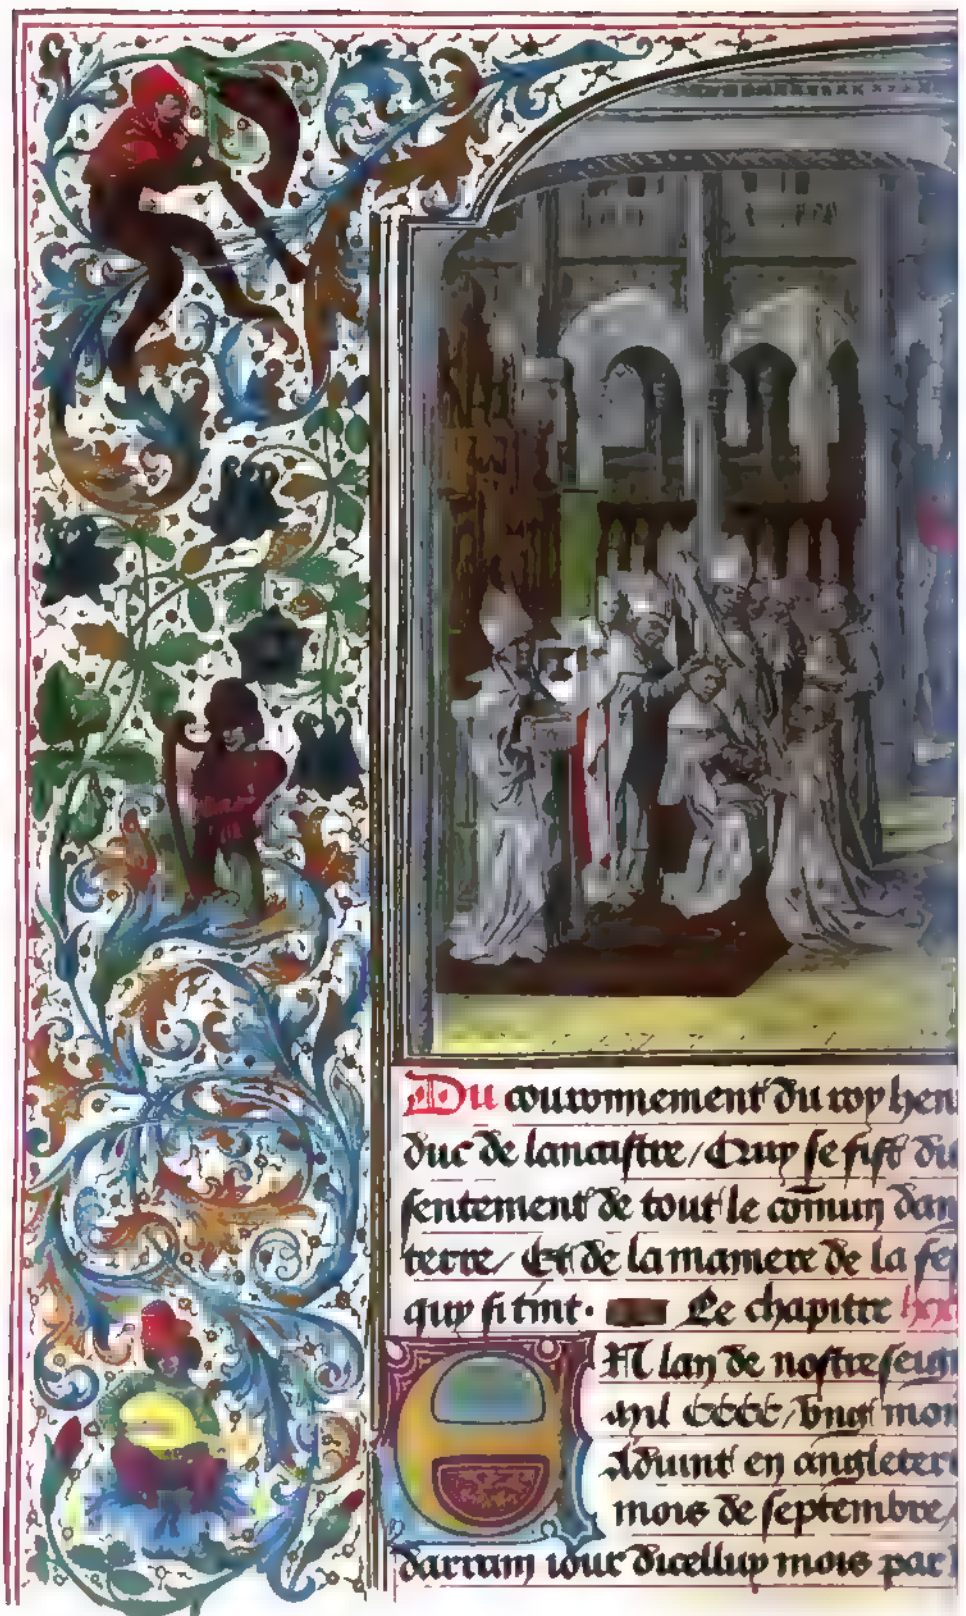 Du couronnement du roy hen
duc de lancastre / Quy se fist du
sentement de tout le cōmun dan
terre / Et de la maniere de la fe
quy si tint. Le chapitre
EN lan de nostre seign
mil cccc / vng mon
Aduint en angleterr
mois de septembre /
darrain iour dicelluy mois par l